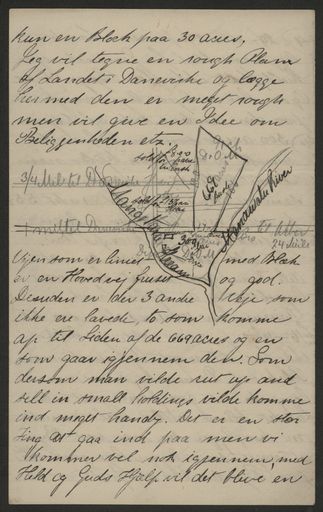 kun en Block paa 30 acres,
Jeg vil tegne en rough Plan
af Landet i Danevirke og lægge
hermed den er meget rough
men vil give en Idee om
Beliggenheden etz.
sold for
sold for
3/4 Mil til
669
acres
Mangatera Stream
Manawatu River
300
1 mil til
24 Mile
Vejen som er liniet med Blæk
er en Hovedvej fuset og god.
Desuden er der 3 andre Veje som
ikke ere lavede, to som komme
op til Siden af de 669 acres og en
som gaar igjennem den. Som
dersom man vilde cut up and
sell in small holdings vilde komme
ind meget handy. Det er en stor
Ting at gaa ind paa men vi
kommer vel nok igjennem, med
Held og Guds Hjælp vil det blive en